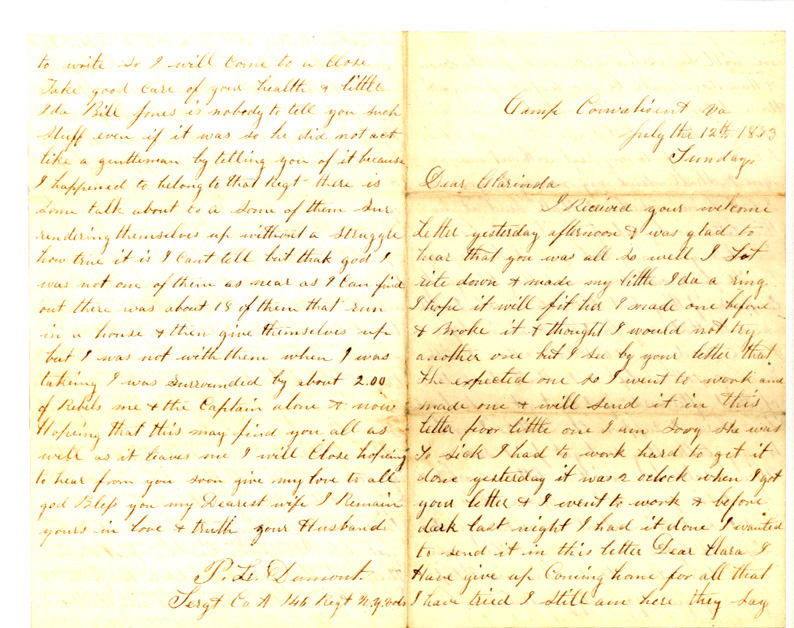 Camp Convalisent Va
July the 12th, 1863
Sunday
Dear Clarinda
I Receivd your welcome
Letter yesterday afternoon & was glad to
hear that you was all so well I Sot
rite down & made my little Ida a ring
I hope it will fit her I made one before
& Broke it & thought I would not try
another one but I see by your letter that
she expected one so I went to work and
made one & will send it in this
letter poor little one I am Sory she was
So Sick I had to work hard to get it
done yesterday it was 2 oclock when I got
your letter & I went to work & before
dark last night I had it done I wanted
to send it in this letter Dear Clara I
Have give up Coming home for all that
I have tried I still am here they say
to write so I will Come to a Close
Take good Care of your health & little
Ida Bill Jones is nobody to tell you such
stuff even if it was so he did not act
like a gentleman by telling you of it because
I happened to belong to that Regt there is
some talk about Co a some of them sur
rendering themselves up without a struggle
how true it is I cant tell but thak god I
was not one of them as near as I Can find
out there was about 18 of them that run
in a house & then give themselves up
but I was not with them when I was
taking I was surrounded by about 200
of Rebels me & the Captain alone & now
Hopeing that this may find you all as
well as it leaves me I will Close hopeing
to hear from you soon give my love to all
god Bless you my Dearest wife I Remain
yours in love & truth your Husband
P. L. Dumont.
Sergt Co A 146 Regt N.Y. Vols